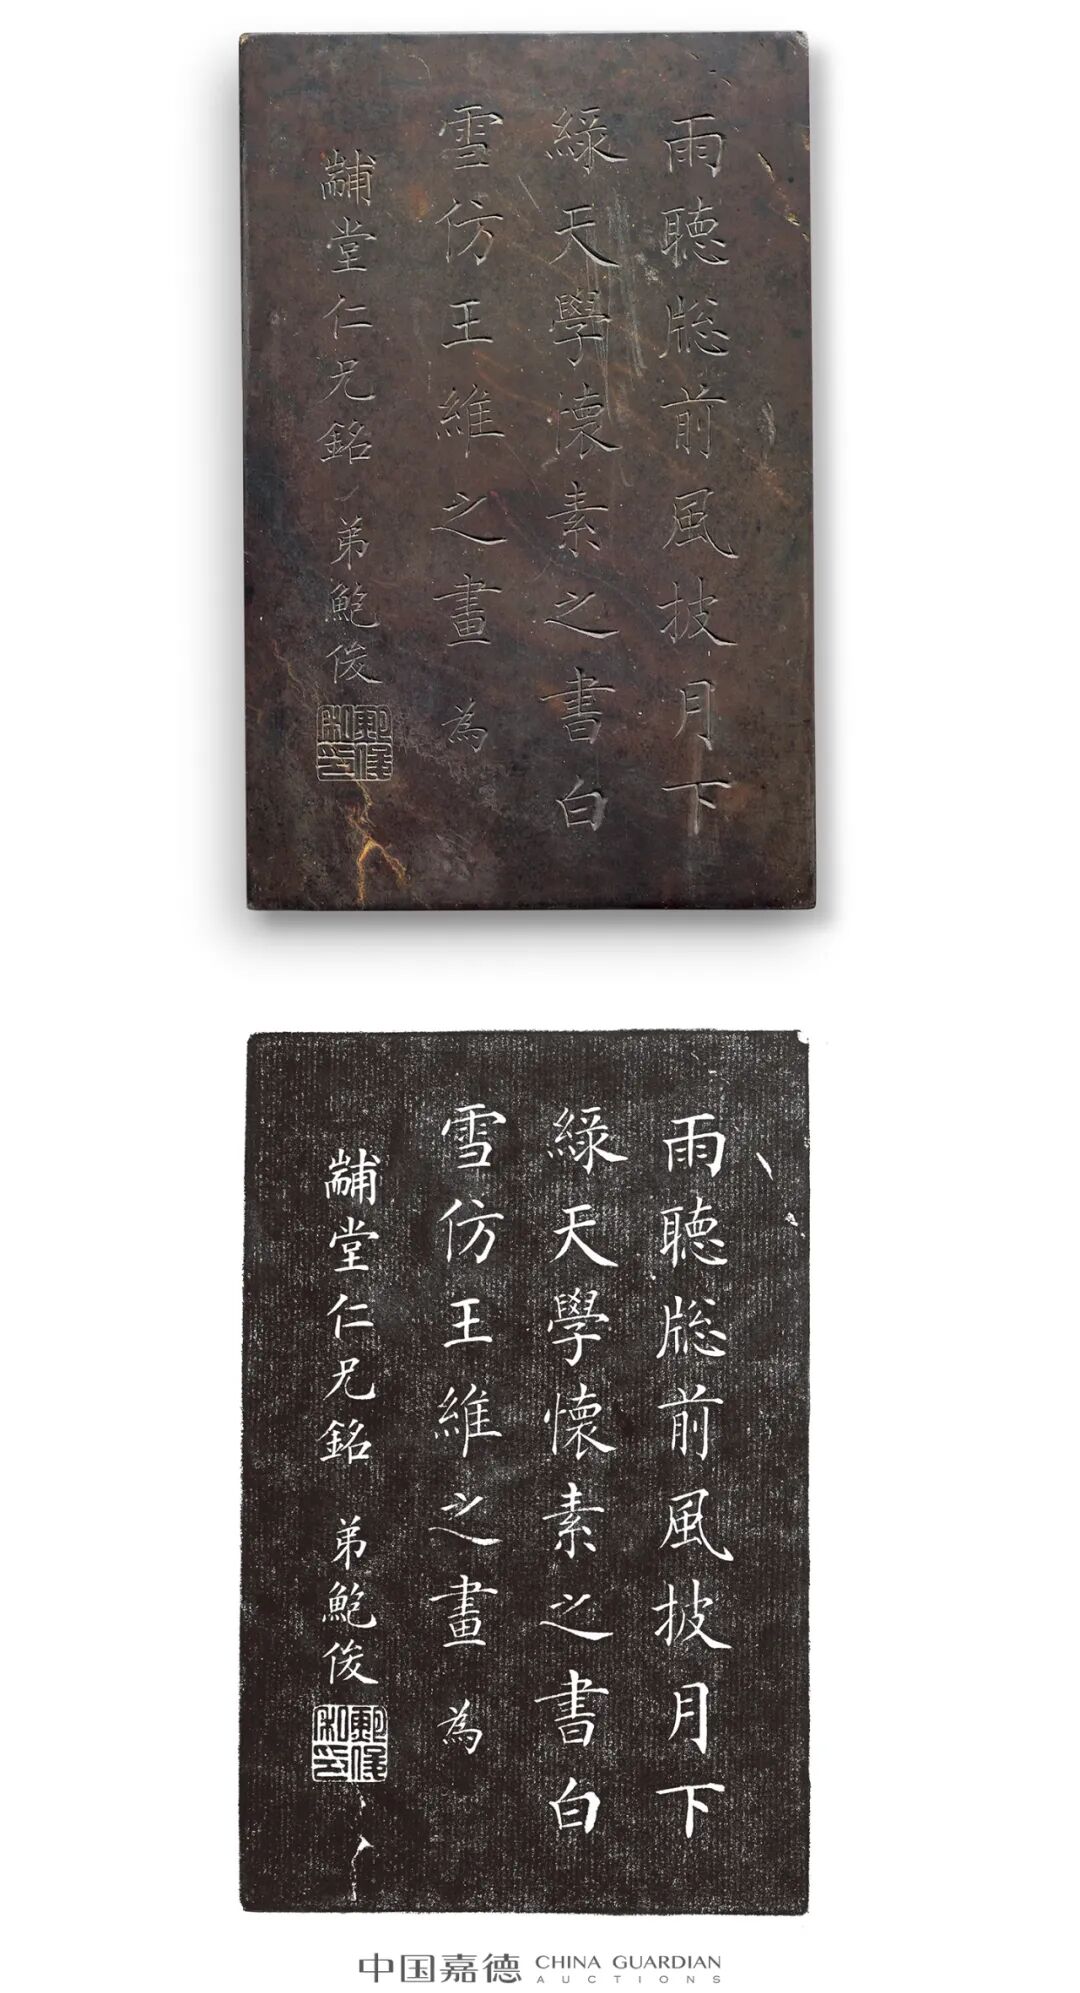 雨聽牎前風披月下
綠天學懷素之書白
雪仿王維之畫 為
黼堂仁兄銘 弟鮑俊
雨聽牎前風披月下
綠天學懷素之書白
雪仿王維之畫 為
黼堂仁兄銘 弟鮑俊
中国嘉德 CHINA GUARDIAN
AUCTIONS